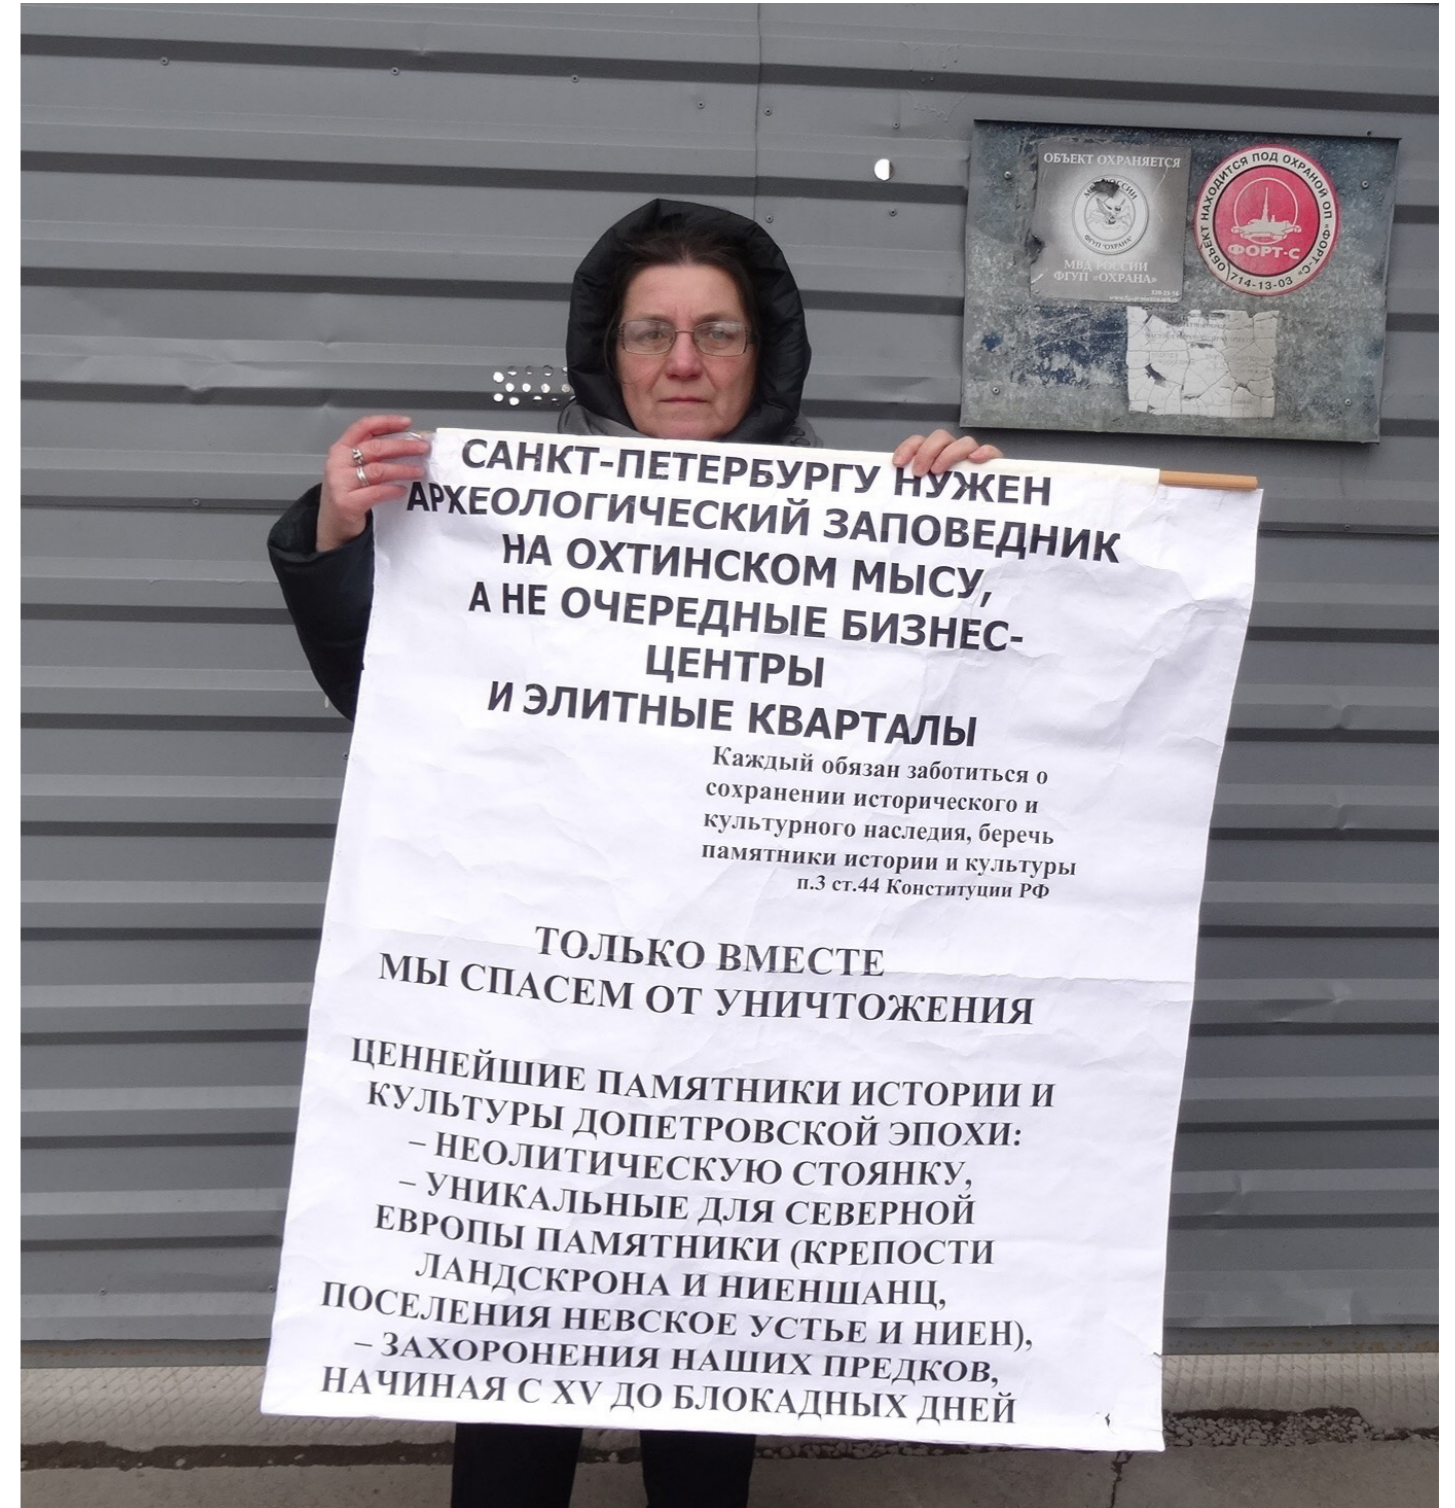 ОБЪЕКТ ОХРАНЯЕТСЯ
МВД РОССИИ
ФГУП "ОХРАНА"
МВД РОССИИ
ФГУП «ОХРАНА»
ОБЪЕКТ НАХОДИТСЯ ПОД ОХРАНОЙ ОП «ФОРТ-С»
ФОРТ-С
714-13-03
САНКТ-ПЕТЕРБУРГУ НУЖЕН
АРХЕОЛОГИЧЕСКИЙ ЗАПОВЕДНИК
НА ОХТИНСКОМ МЫСУ,
А НЕ ОЧЕРЕДНЫЕ БИЗНЕС-
ЦЕНТРЫ
И ЭЛИТНЫЕ КВАРТАЛЫ
Каждый обязан заботиться о
сохранении исторического и
культурного наследия, беречь
памятники истории и культуры
п.3 ст.44 Конституции РФ
ТОЛЬКО ВМЕСТЕ
МЫ СПАСЕМ ОТ УНИЧТОЖЕНИЯ
ЦЕННЕЙШИЕ ПАМЯТНИКИ ИСТОРИИ И
КУЛЬТУРЫ ДОПЕТРОВСКОЙ ЭПОХИ:
– НЕОЛИТИЧЕСКУЮ СТОЯНКУ,
– УНИКАЛЬНЫЕ ДЛЯ СЕВЕРНОЙ
ЕВРОПЫ ПАМЯТНИКИ (КРЕПОСТИ
ЛАНДСКРОНА И НИЕНШАНЦ,
ПОСЕЛЕНИЯ НЕВСКОЕ УСТЬЕ И НИЕН),
– ЗАХОРОНЕНИЯ НАШИХ ПРЕДКОВ,
НАЧИНАЯ С XV ДО БЛОКАДНЫХ ДНЕЙ